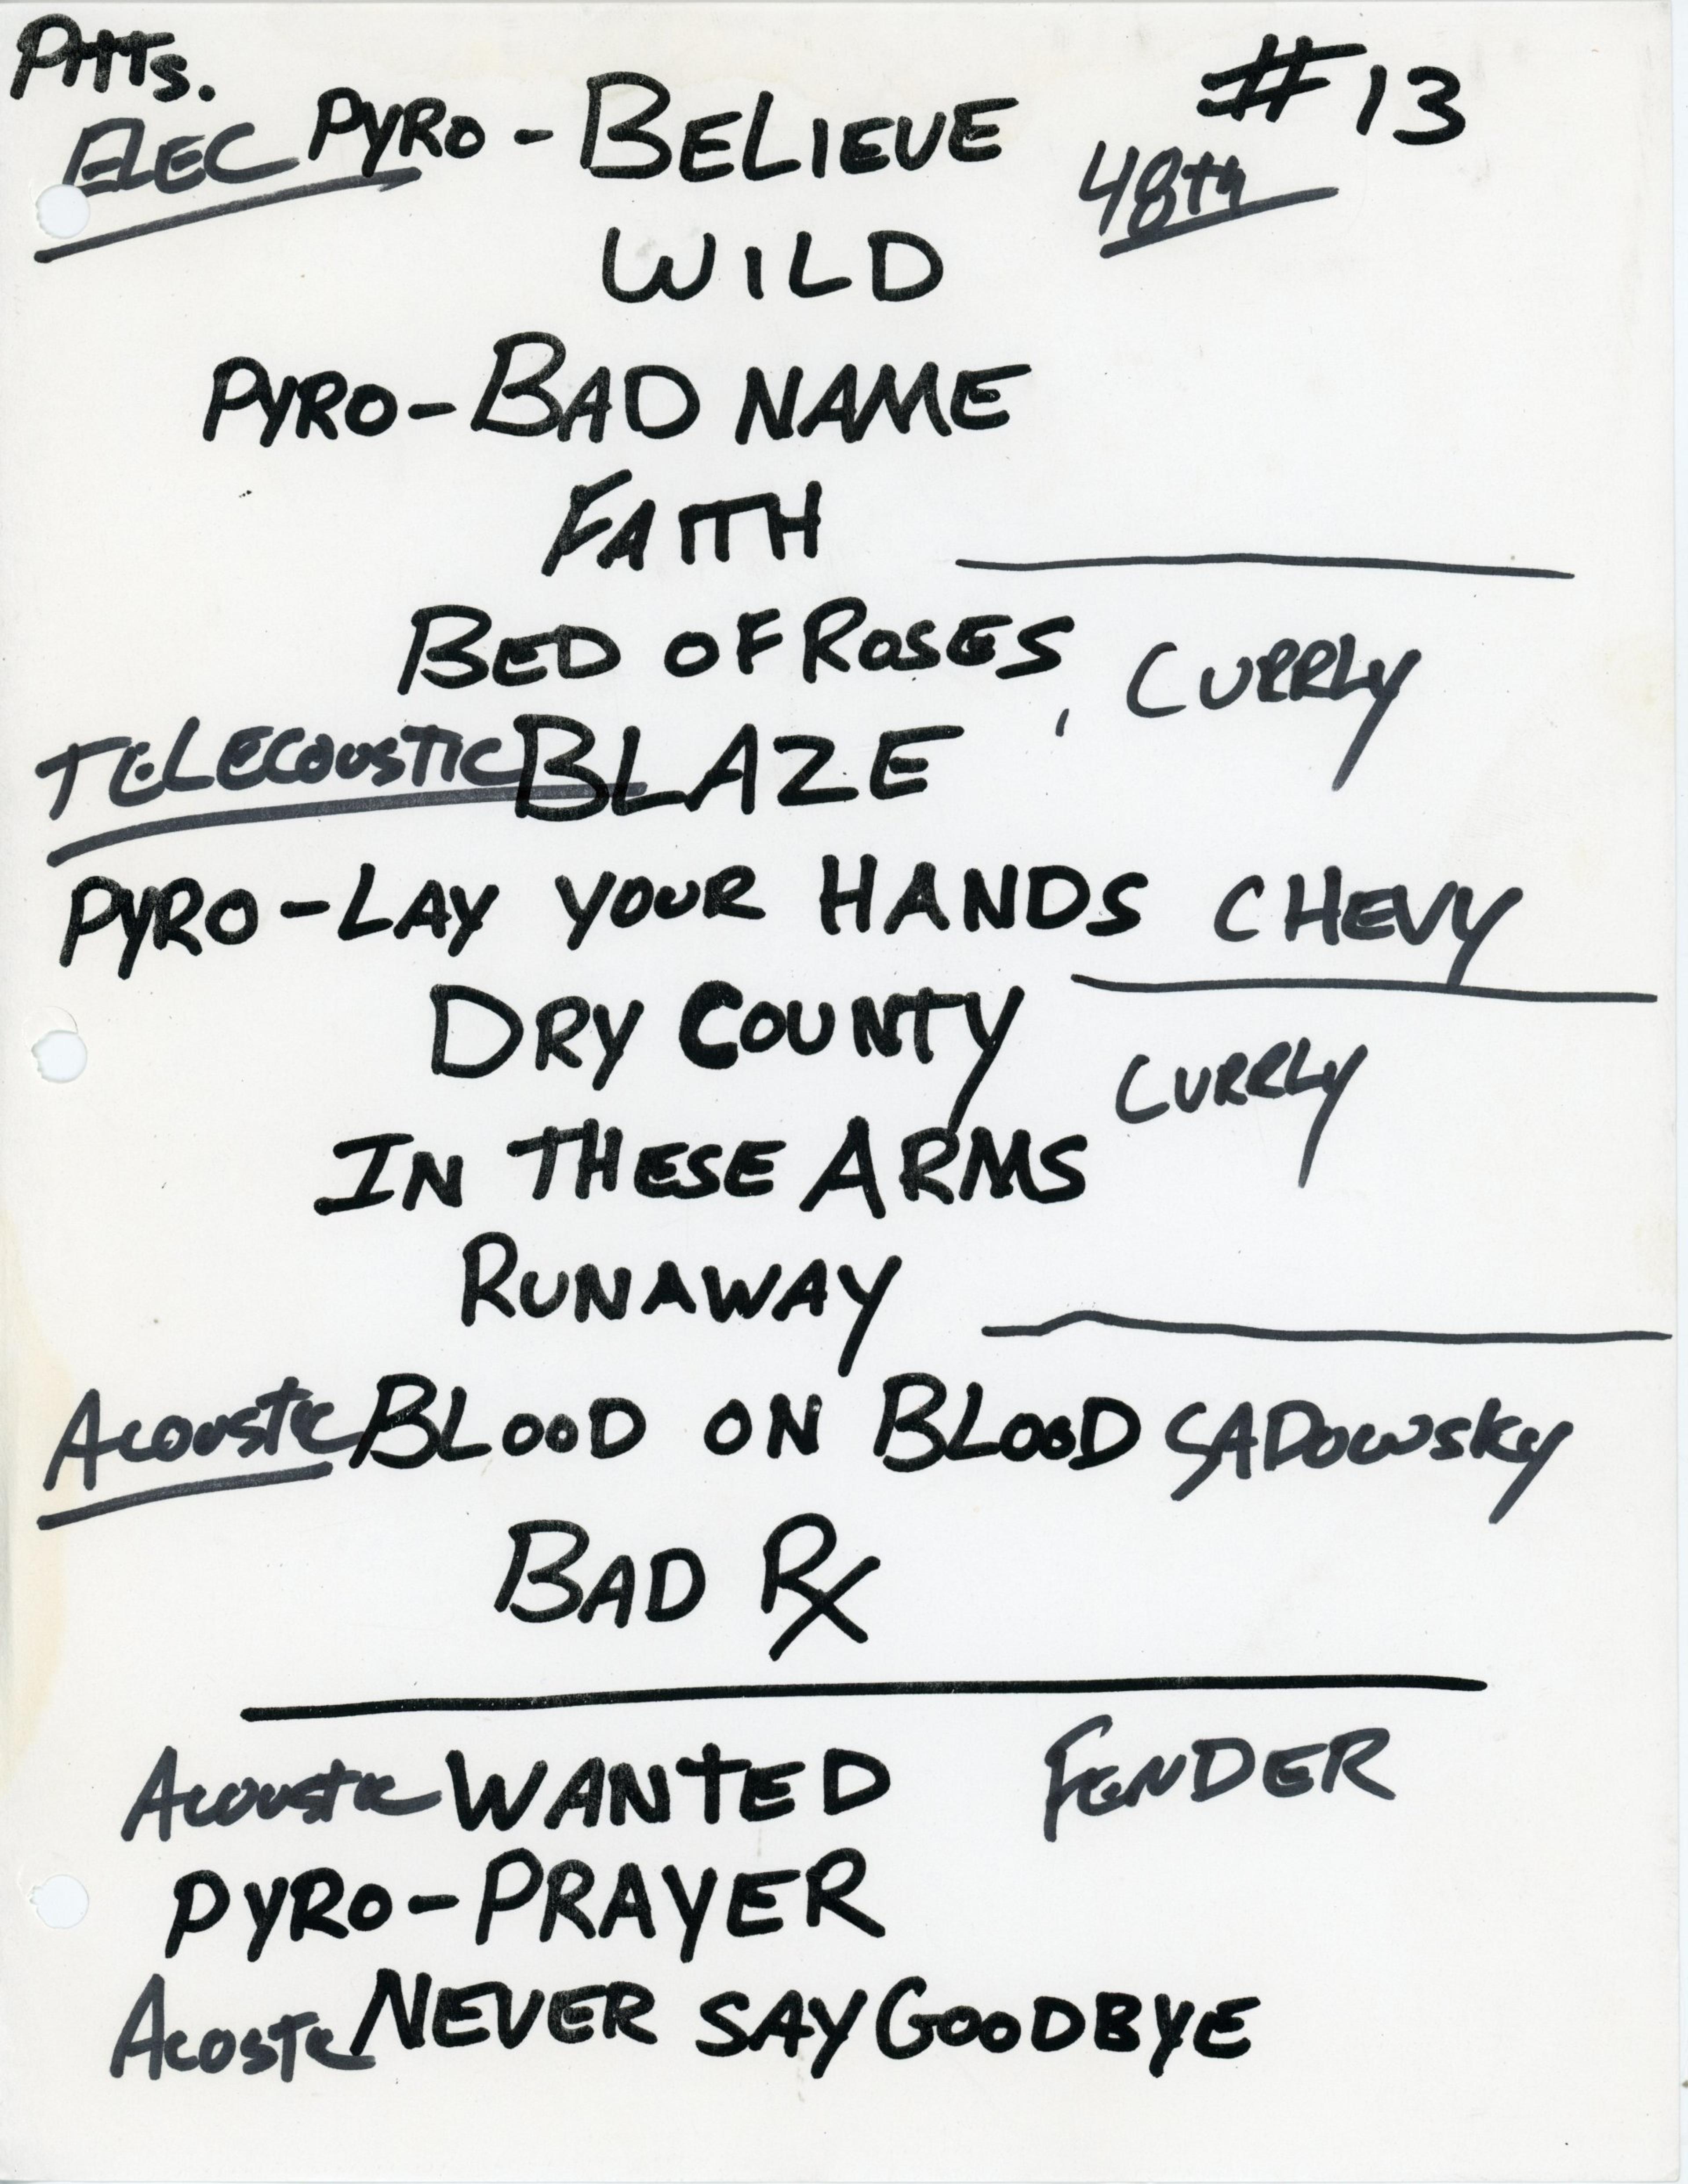 Pitts. #13
ELEC PYRO - BELIEVE 48th
WILD
PYRO - BAD NAME
FAITH
BED OF ROSES
CURRLY
TELECOUSTIC BLAZE
PYRO - LAY YOUR HANDS CHEVY
DRY COUNTY
CURRLY
IN THESE ARMS
RUNAWAY
ACOUSTIC BLOOD ON BLOOD SADOWSKY
BAD RX
ACOUSTIC WANTED FENDER
PYRO - PRAYER
ACOSTIC NEVER SAY GOODBYE